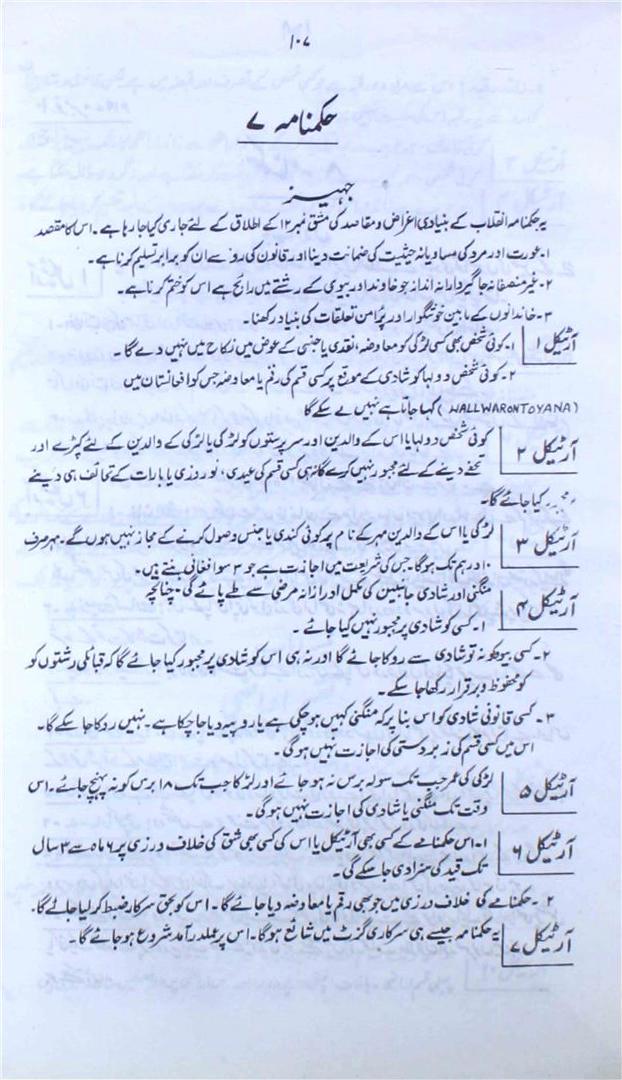 ۱۰۷
حکمنامہ ۷
جہیز
یہ حکمنامہ انقلاب کے بنیادی اغراض و مقاصد کی مشق نمبر ۱۲ کے اطلاق کے لئے جاری کیا جا رہا ہے۔ اس کا مقصد
۱۔ عورت اور مرد کی مساویانہ حیثیت کی ضمانت دینا اور قانون کی رو سے ان کو برابر تسلیم کرنا ہے۔
۲۔ غیر منصفانہ جاگیردارانہ انداز جو خاوند اور بیوی کے رشتے میں رائج ہے اس کو ختم کرنا ہے۔
۳۔ خاندانوں کے مابین خوشگوار اور پرامن تعلقات کی بنیاد رکھنا۔
آرٹیکل ۱ ۱۔ کوئی شخص بھی کسی لڑکی کو معاوضہ، نقدی یا جنس کے عوض میں نکاح میں نہیں دے گا۔
۲۔ کوئی شخص دولہا کو شادی کے موقع پر کسی قسم کی رقم یا معاوضہ جس کو افغانستان میں
(HALLWARONTOYANA) کہا جاتا ہے نہیں لے سکے گا
آرٹیکل ۲ کوئی شخص دولہا یا اس کے والدین اور سرپرستوں کو لڑکی یا لڑکی کے والدین کے لئے کپڑے اور
تحفے دینے کے لئے مجبور نہیں کرے گا نہ ہی کسی قسم کی عیدی، نوروزی یا بارات کے تحائف ہی دینے
پر مجبور کیا جائے گا۔
آرٹیکل ۳ لڑکی یا اس کے والدین مہر کے نام پر کوئی نقدی یا جنس وصول کرنے کے مجاز نہیں ہوں گے۔ مہر صرف
۱۰ درہم تک ہوگا۔ جس کی شریعت میں اجازت ہے جو ۳ سو افغانی بنتے ہیں۔
آرٹیکل ۴ منگنی اور شادی جانبین کی مکمل اور آزادانہ مرضی سے طے پائے گی۔ چنانچہ
۱۔ کسی کو شادی پر مجبور نہیں کیا جائے۔
۲۔ کسی بیوہ کو نہ تو شادی سے روکا جائے گا اور نہ ہی اس کو شادی پر مجبور کیا جائے گا کہ قبائلی رشتوں کو
کو محفوظ و برقرار رکھا جا سکے۔
۳۔ کسی قانونی شادی کو اس بنا پر کہ منگنی کہیں ہو چکی ہے یا روپیہ دیا جا چکا ہے۔ نہیں روکا جا سکے گا۔
اس میں کسی قسم کی زبردستی کی اجازت نہیں ہوگی۔
آرٹیکل ۵ لڑکی کی عمر جب تک سولہ برس نہ ہو جائے اور لڑکا جب تک ۱۸ برس کو نہ پہنچ جائے۔ اس
وقت تک منگنی یا شادی کی اجازت نہیں ہوگی۔
آرٹیکل ۶ ۱۔ اس حکمنامے کے کسی بھی آرٹیکل یا اس کی کسی بھی شق کی خلاف ورزی پر ۶ ماہ سے ۳ سال
تک قید کی سزا دی جا سکے گی۔
۲۔ حکمنامے کی خلاف ورزی میں جو بھی رقم یا معاوضہ دیا جائے گا۔ اس کو بحق سرکار ضبط کر لیا جائے گا۔
آرٹیکل ۷ یہ حکمنامہ جیسے ہی سرکاری گزٹ میں شائع ہوگا۔ اس پر عملدرآمد شروع ہو جائے گا۔